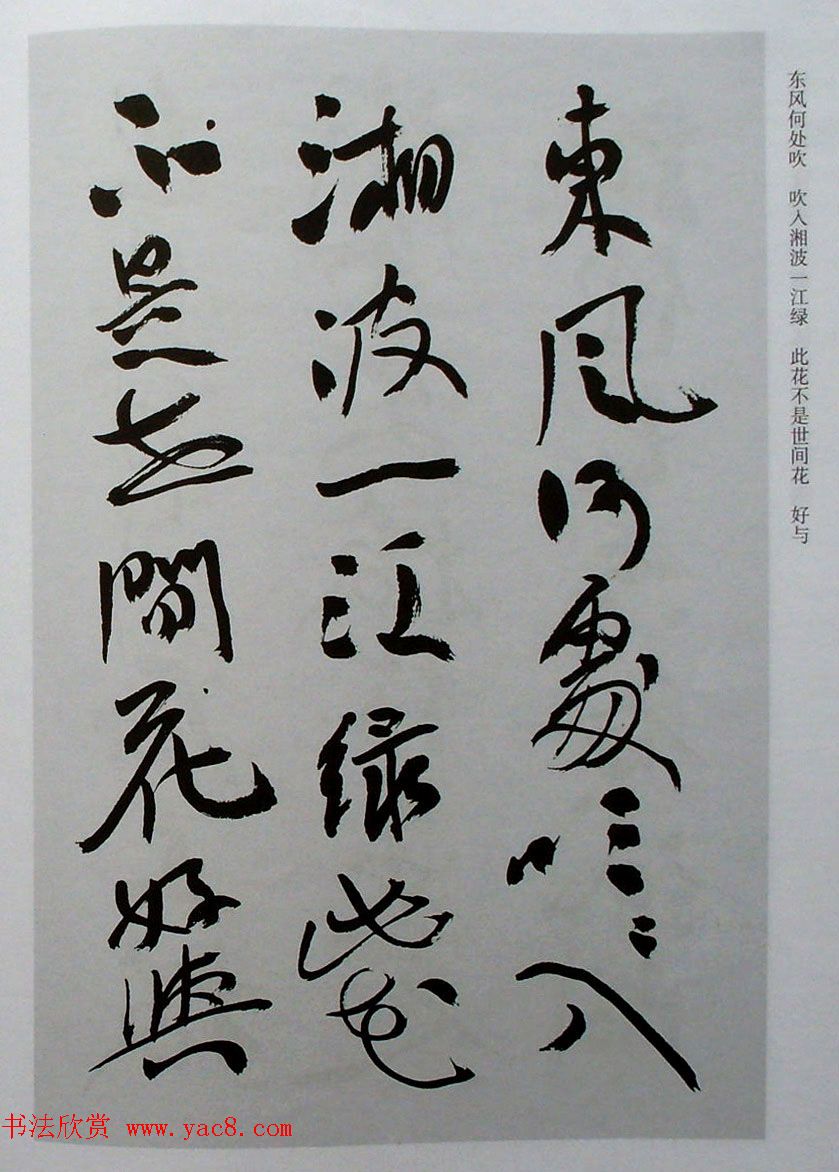 東風何處吹〻入
湘波一江緑此花
不是世間花好與
东风何处吹　吹入湘波一江绿　此花不是世间花　好与
书法欣赏 www.yac8.com